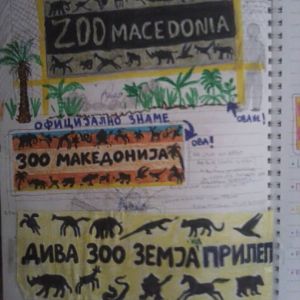 ZOO MACEDONIA
ОФИЦИЈАЛНО ЗНАМЕ
ОВА!
ЗОО МАКЕДОНИЈА
ДИВА ЗОО ЗЕМЈА ПРИЛЕП